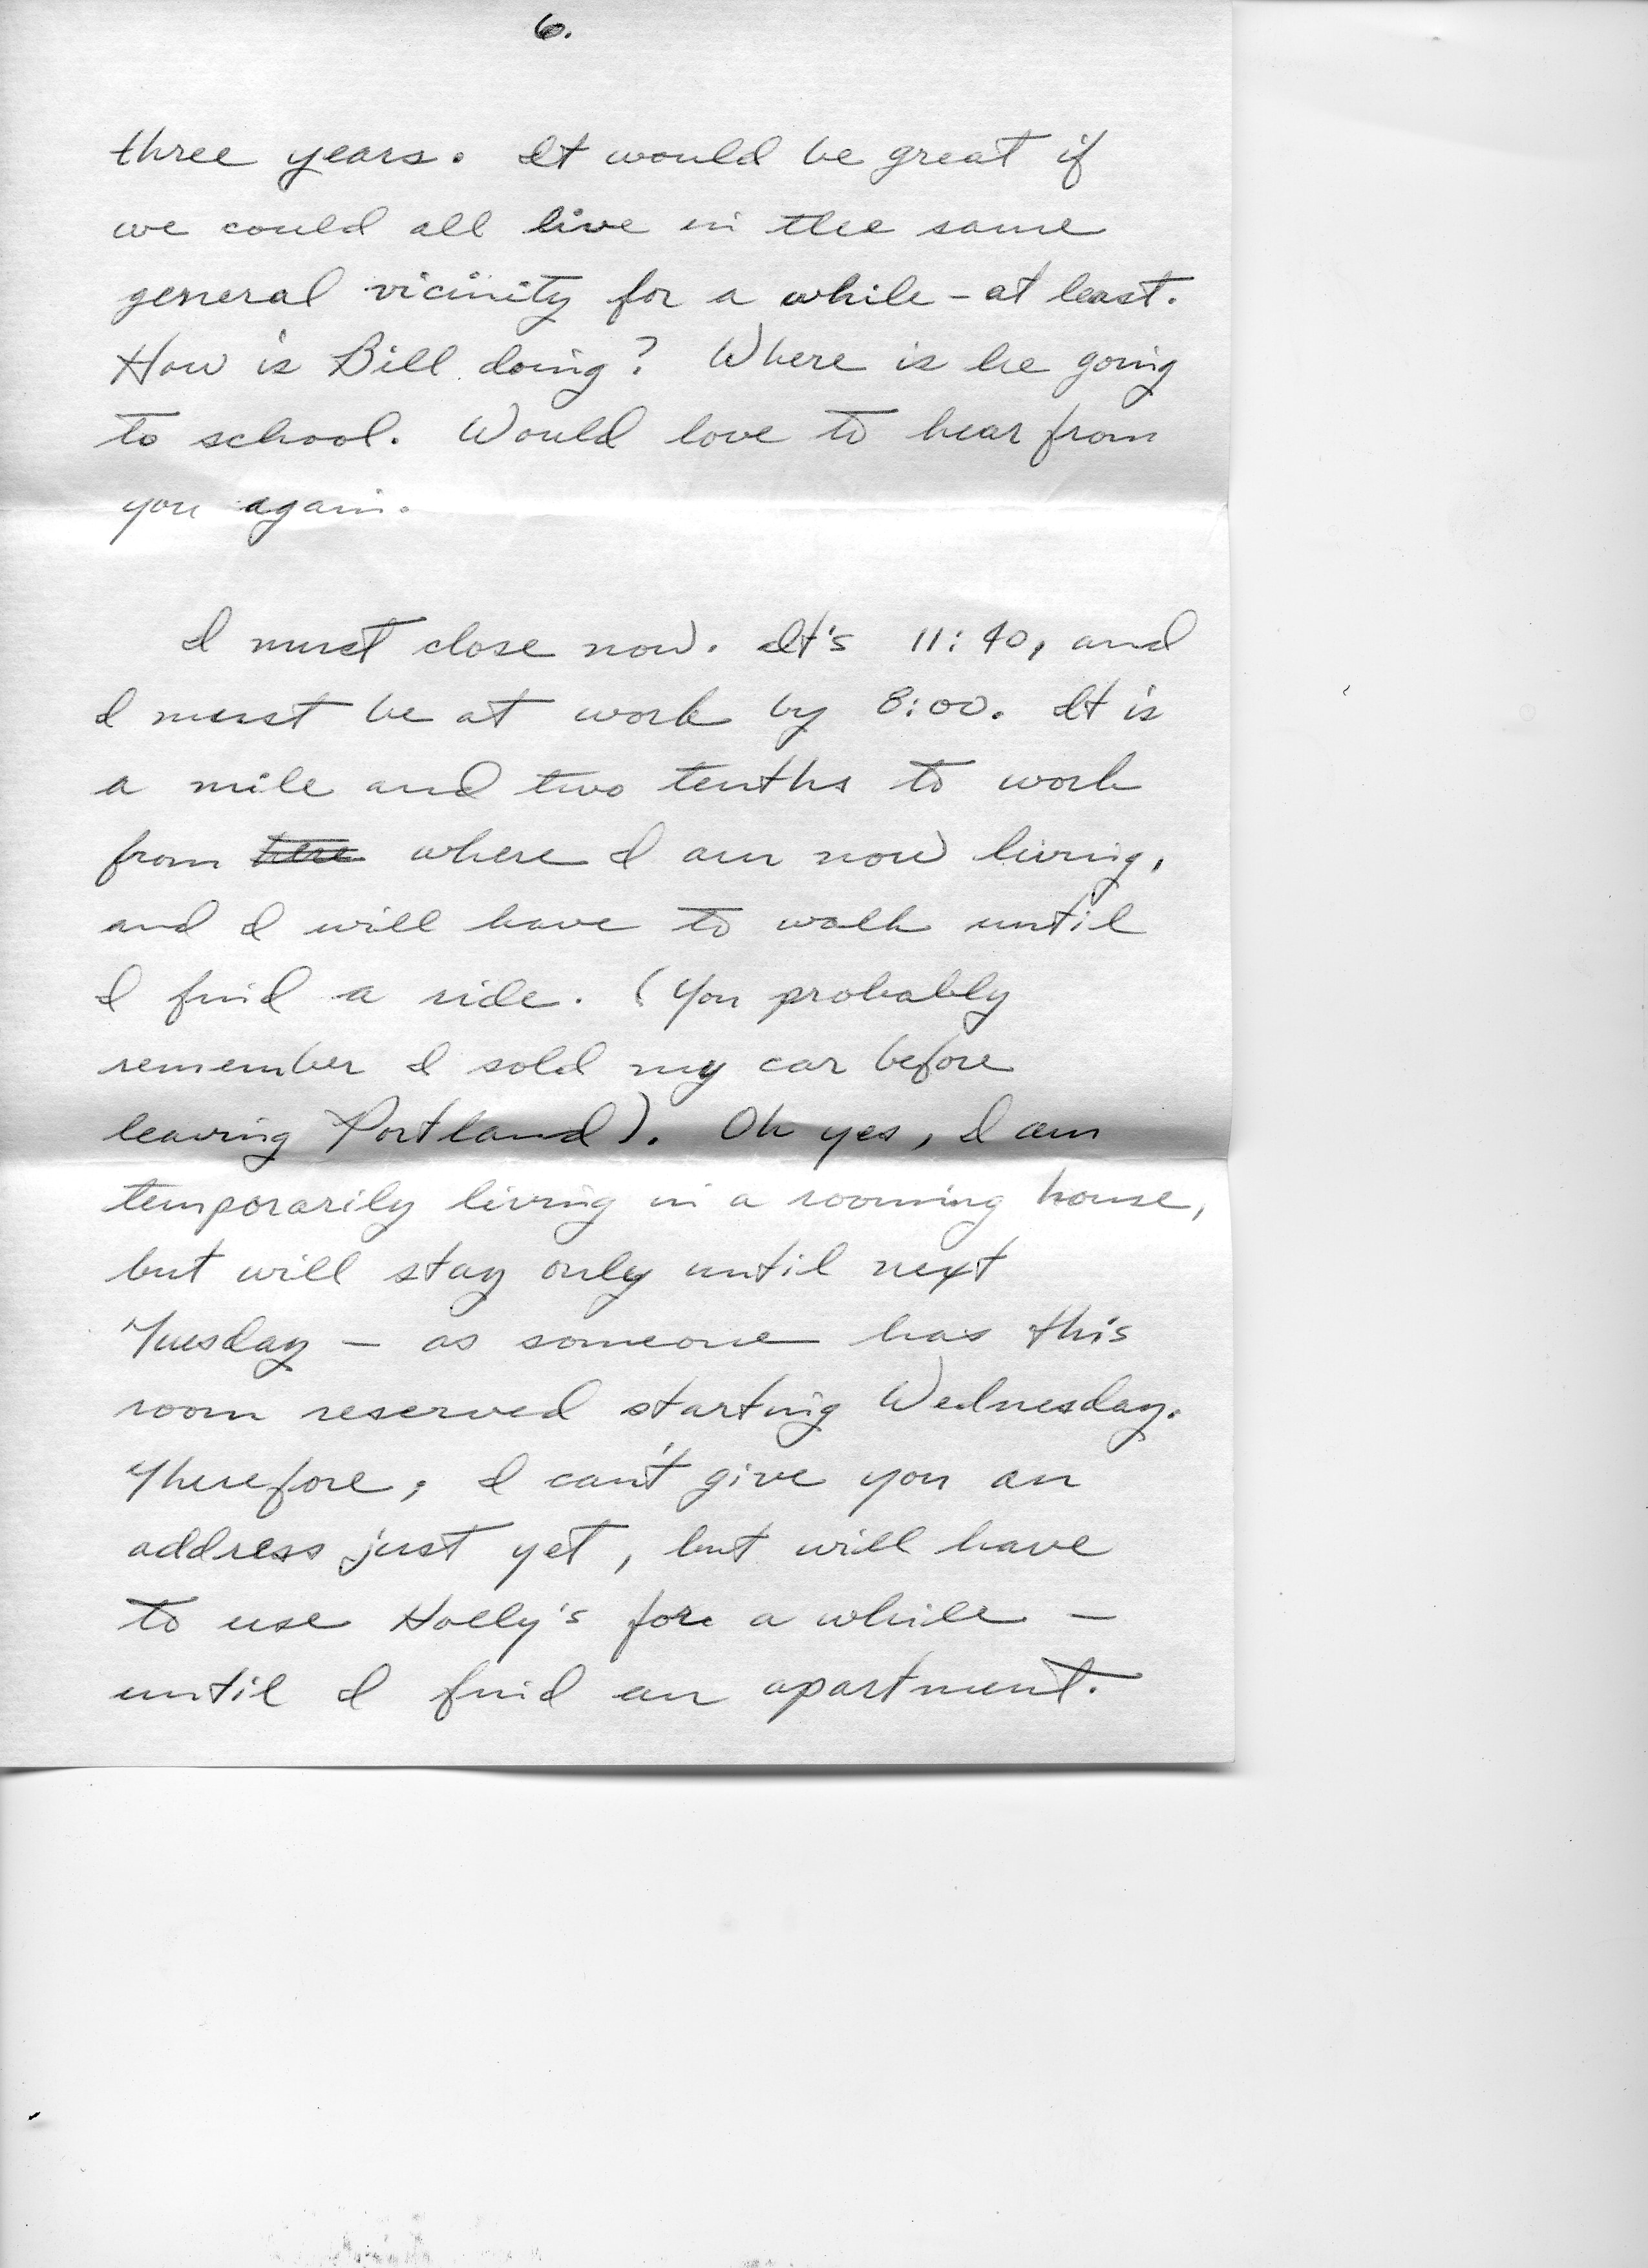 6.
three years. It would be great if
we could all live in the same
general vicinity for a while - at least.
How is Bill doing? Where is he going
to school. Would love to hear from
you again.
I must close now. It's 11:40, and
I must be at work by 8:00. It is
a mile and two tenths to work
from here where I am now living,
and I will have to walk until
I find a ride. (You probably
remember I sold my car before
leaving Portland). Oh yes, I am
temporarily living in a rooming house,
but will stay only until next
Tuesday - as someone has this
room reserved starting Wednesday.
Therefore, I can't give you an
address just yet, but will have
to use Holly's for a while -
until I find an apartment.